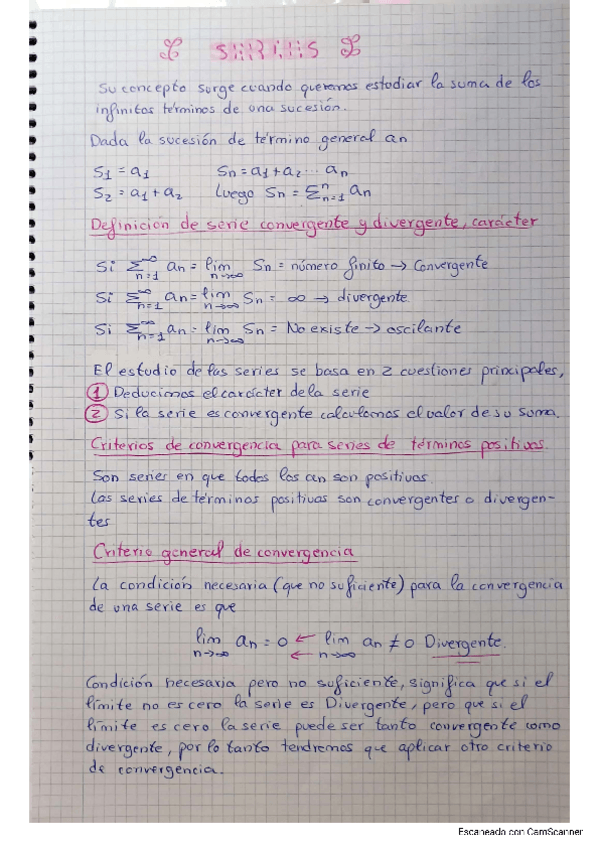 SERIES
Su concepto surge cuando queremos estudiar la suma de los
infinitos términos de una sucesión.
Dada la sucesión de término general an
S1 = a1 Sn = a1 + a2 ... an
S2 = a1 + a2 Luego Sn = Σ^n_{n=1} an
Definición de serie convergente y divergente, carácter
Si Σ^∞_{n=1} an = lim_{n→∞} Sn = número finito → Convergente
Si Σ^∞_{n=1} an = lim_{n→∞} Sn = ∞ → divergente
Si Σ^∞_{n=1} an = lim_{n→∞} Sn = No existe → oscilante
El estudio de las series se basa en 2 cuestiones principales,
① Deducimos el carácter de la serie
② Si la serie es convergente calculamos el valor de su suma.
Criterios de convergencia para series de términos positivos.
Son series en que todos los an son positivos.
Las series de términos positivas son convergentes o divergen-
tes
Criterio general de convergencia
La condición necesaria (que no suficiente) para la convergencia
de una serie es que
lim_{n→∞} an = 0 ← ← lim_{n→∞} an ≠ 0 Divergente.
Condición necesaria pero no suficiente, significa que si el
límite no es cero la serie es Divergente, pero que si el
límite es cero la serie puede ser tanto convergente como
divergente, por lo tanto tendremos que aplicar otro criterio
de convergencia.
Escaneado con CamScanner